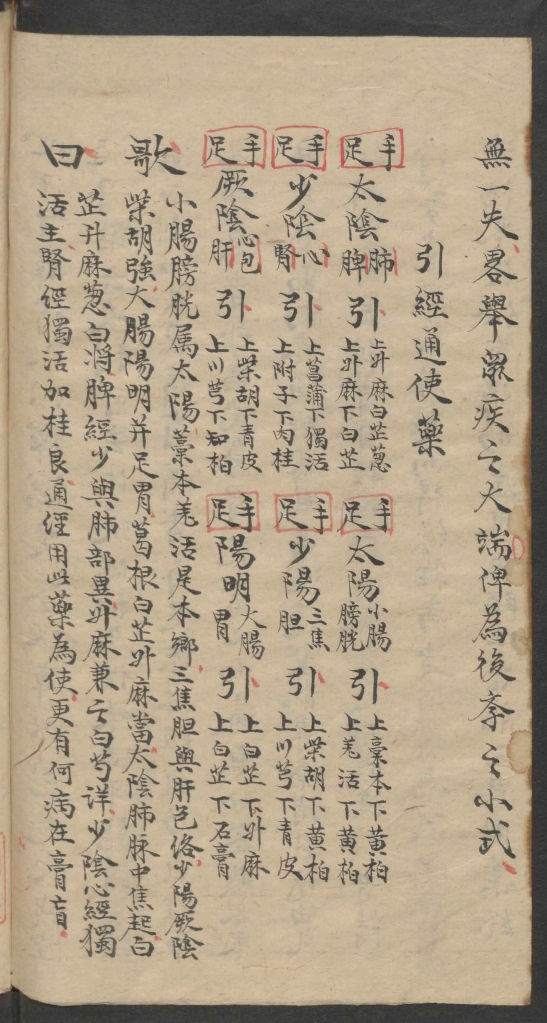 無一失畧舉眾疾之大端俾為後斈之小式
引經通使藥
手足太陰肺脾引上升麻白芷葱上升麻下白芷
手足太陽小腸膀胱引上藁本下黄柏上羌活下黄柏
手足少陰心腎引上菖蒲下獨活上附子下肉桂
手足少陽三焦胆引上柴胡下黄柏上川芎下青皮
手足厥陰心包肝引上柴胡下青皮上川芎下知柏
手足陽明大腸胃引上白芷下升麻上白芷下石膏
歌曰
小腸膀胱属太陽藁本羌活是本鄉三焦胆與肝包络少陽厥陰
柴胡強大腸陽明并足胃葛根白芷升麻當太陰肺脉中焦起白
芷升麻葱白將脾經少與肺部異升麻兼之白芍詳少陰心經獨
活主腎經獨活加桂良通經用此藥為使更有何病在膏肓